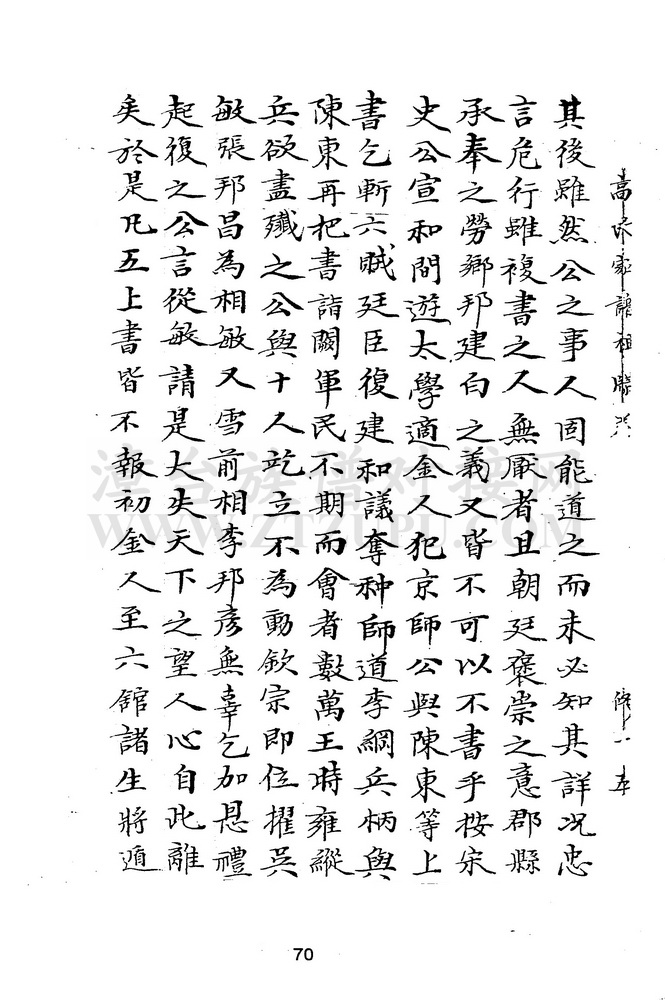 高氏家譜祖勝公 傳一本
其後雖然公之事人固能道之而未必知其詳况忠
言危行雖複書之人無厭者且朝廷褒崇之意郡縣
承奉之勞鄉邦建白之義又皆不可以不書乎按宋
史公宣和間遊太學適金人犯京師公與陳東等上
書乞斬六賊廷臣復建和議奪种師道李綱兵柄與
陳東再把書詣闕軍民不期而會者數萬王時雍縱
兵欲盡殲之公與十人屹立不為動欽宗即位擢吳
敏張邦昌為相敏又雪前相李邦彥無辜乞加恩禮
起復之公言從敏請是大失天下之望人心自此離
矣於是凡五上書皆不報初金人至六館諸生將遁
漳台族谱对接网
WWW.ZTZUPU.COM
70